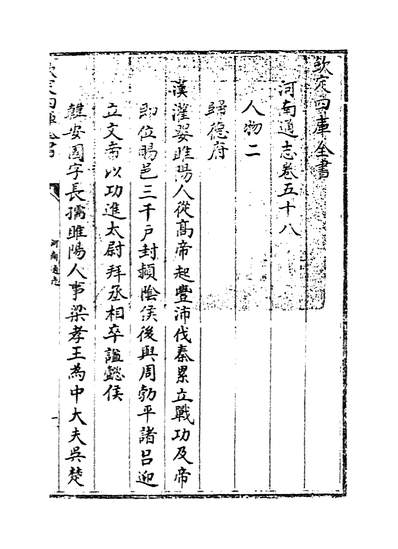 欽定四庫全書
河南通志卷五十八
人物二
歸德府
漢灌嬰睢陽人從髙帝起豐沛伐秦累立戰功及帝
即位賜邑三千户封潁隂侯後與周勃平諸吕迎
立文帝以功進太尉拜丞相卒諡懿侯
韓安國字長孺睢陽人事梁孝王為中大夫吳楚
欽定四庫全書
河南通志
一